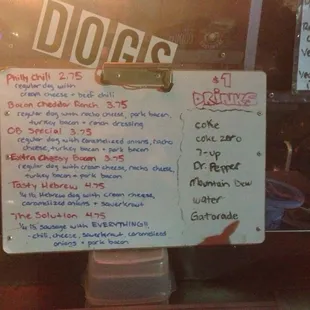 DOGS
Philly Chili 2.75
regular dog with
cream cheese + beef chili
Bacon Cheddar Ranch 3.75
regular dog with nacho cheese, pork bacon,
turkey bacon + ranch dressing
OB Special 3.75
regular dog with caramelized onions, nacho
cheese, turkey bacon + pork bacon
Extra Cheesy Bacon 3.75
regular dog with cream cheese, nacho cheese,
turkey bacon + pork bacon
Tasty Hebrew 4.75
1/4 lb Hebrew dog with cream cheese,
caramelized onions + sauerkraut
The Solution 4.75
1/4 lb sausage with EVERYTHING!!
- chili, cheese, sauerkraut, caramelized
onions + pork bacon
$1
DRINKS
coke
coke zero
7-up
Dr. Pepper
Mountain Dew
water
Gatorade